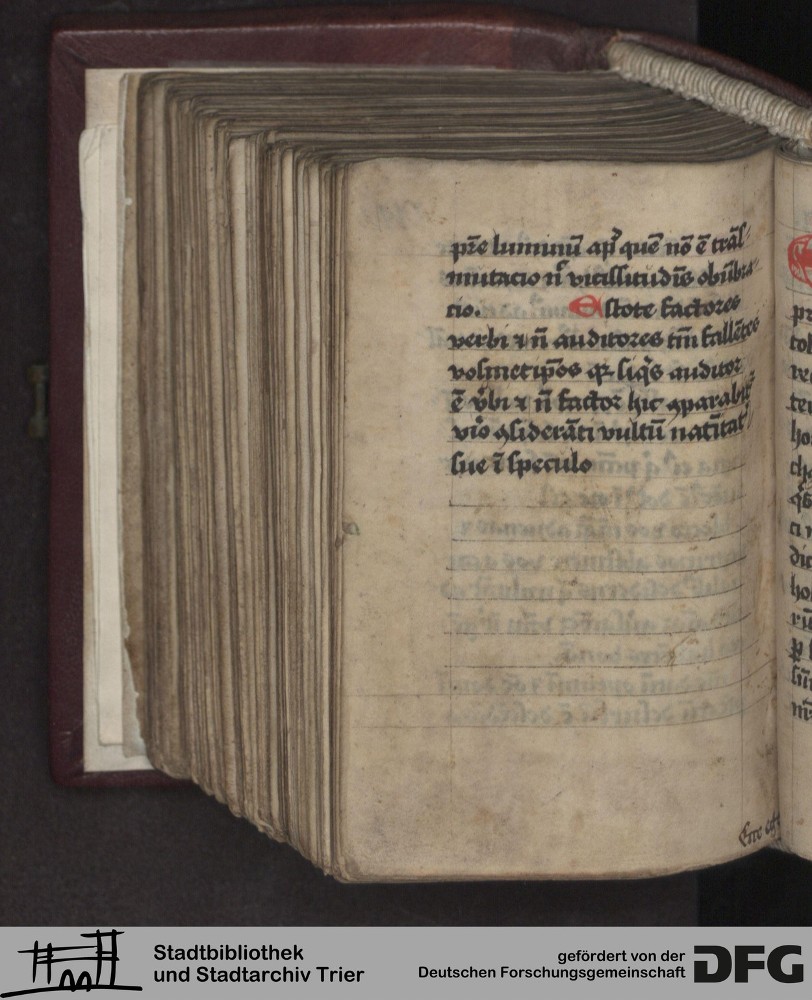 pr̄e luminū apᵈ quē nō ē trāſ-
mutacio nᶜ viciſſitudīs obūbra-
cio. Eſtote factores
verbi ⁊ n̄ auditores tm̄ fallētes
voſmetip̄os qꝛ ſiqͥs auditor
ē v̓bi ⁊ n̄ factor hic ꝯparabitᷣ
viͦo ꝯſiderāti vultū natītatꝭ
ſue ī ſpeculo
Stadtbibliothek
und Stadtarchiv Trier
gefördert von der
Deutschen Forschungsgemeinschaft
DFG